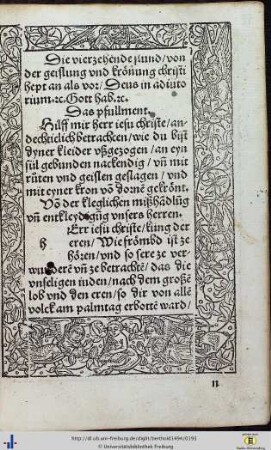 Die vierzehende stund/von
der geislung vnd krönung christi
hept an als vor/Deus in adiuto
rium.ꝛc.Gott hab.ꝛc.
Das pfullment.
Hilff mir herr iesu christe/an-
dechticlich betrachten/wie du bist
dyner kleider vßgezogen/an eyn
sul gebunden nackendig/vn̄ mit
růten vnd geislen geslagen/vnd
mit eyner kron vō dornē gekrönt.
Võ der kleglichen mißhādlūg
vn̄ entkleydigūg vnsers herren.
h Err iesu christe/kunig der
eren/Wie frömbd ist ze
hören/vnd so sere ze ver-
wunderē vn̄ ze betrachtē/das die
vnseligen inden/nach dem großē
lob vnd den eren/so dir von alle
volck am palmtag erbottē ward/
n
http://dl.ub.uni-freiburg.de/diglit/berthold1494c/0191
© Universitätsbibliothek Freiburg